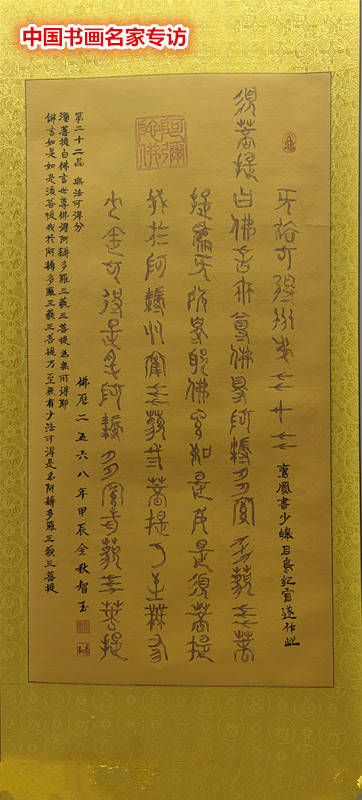 中国书画名家专访
鸞鳳書少皞目鳥紀官遂作此
須菩提白佛言世尊佛得阿耨多羅三藐三菩
提為无所得耶佛言如是如是須菩提
我於阿耨多羅三藐三菩提乃至無有
少法可得是名阿耨多羅三藐三菩提
阿彌陀佛
第二十二品 無法可得分
湏菩提白佛言世尊佛得阿耨多羅三藐三菩提為無所得耶
佛言如是如是湏菩提我於阿耨多羅三藐三菩提乃至無有少法可得是名阿耨多羅三藐三菩提
佛历二五六八年甲辰金秋智玉